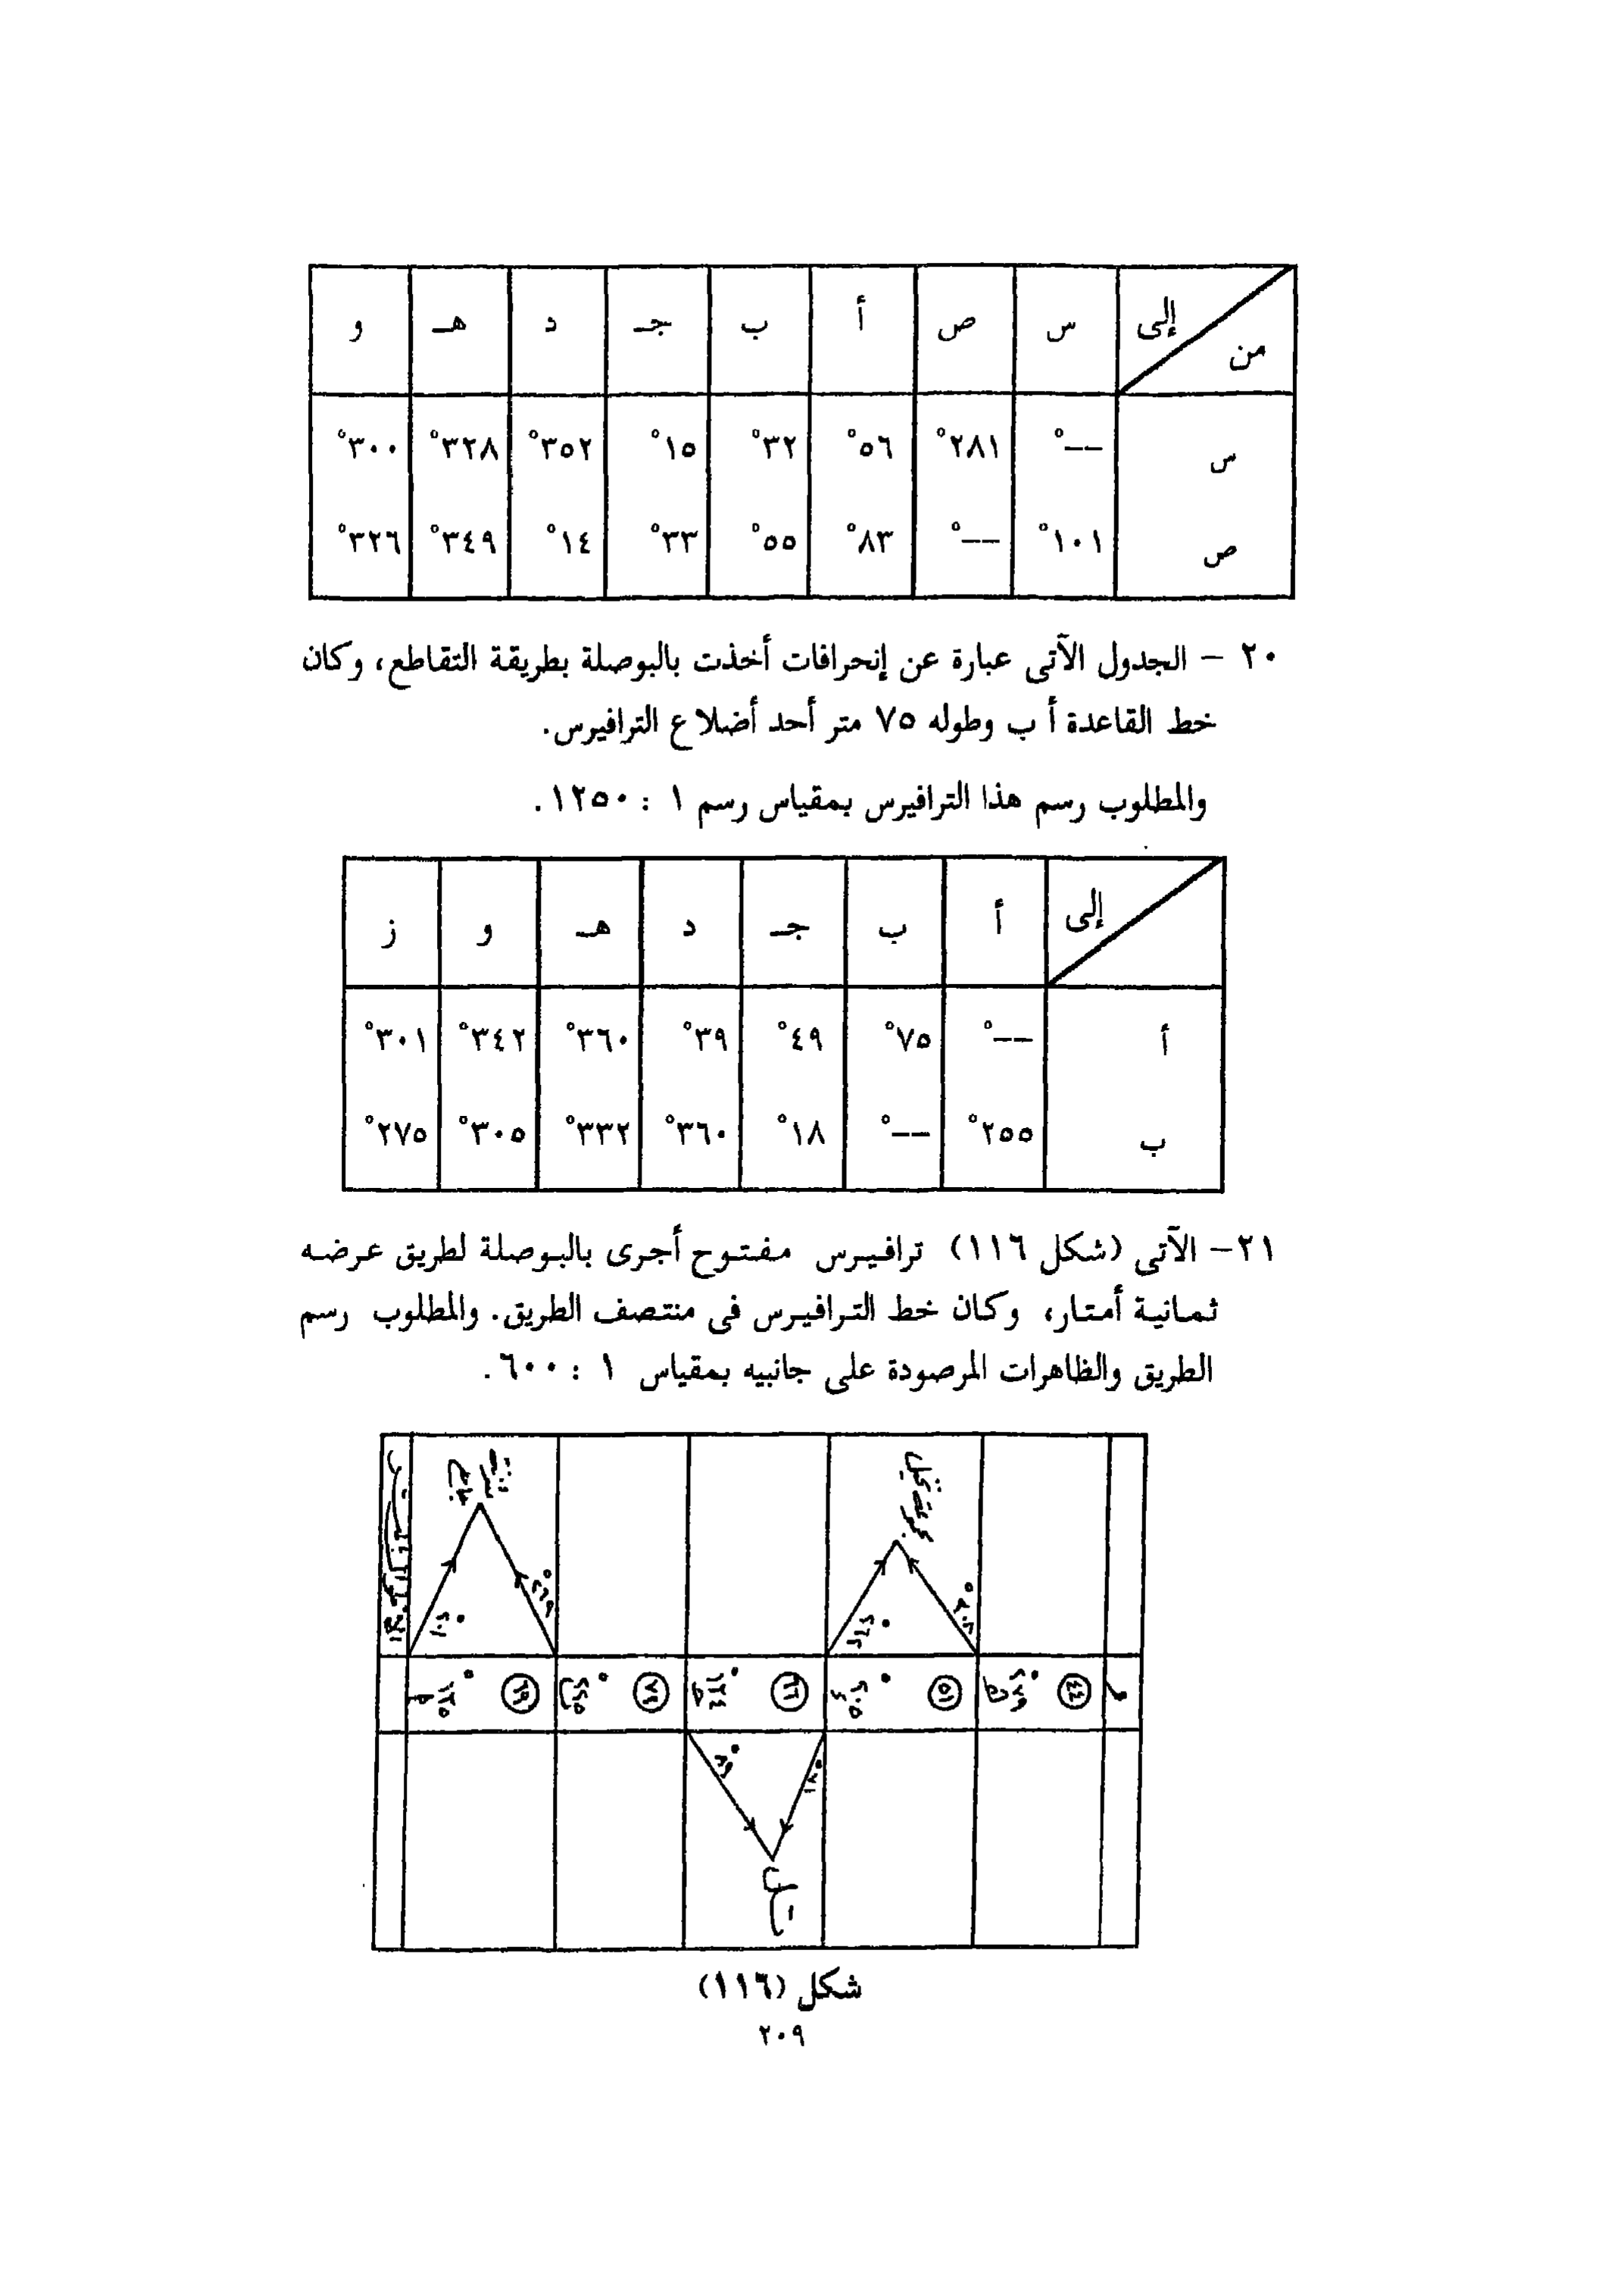 من إلى س ص أ ب جـ د هـ و
س —° ٢٨١° ٥٦° ٣٢° ١٥° ٣٥٢° ٣٢٨° ٣٠٠°
ص ١٠١° —° ٨٣° ٥٥° ٣٣° ١٤° ٣٤٩° ٣٢٦°
٢٠ – الجدول الآتى عبارة عن إنحرافات أخذت بالبوصلة بطريقة التقاطع، وكان
خط القاعدة أ ب وطوله ٧٥ متر أحد أضلاع الترافيرس.
والمطلوب رسم هذا الترافيرس بمقياس رسم ١ : ١٢٥٠.
إلى أ ب جـ د هـ و ز
أ —° ٧٥° ٤٩° ٣٩° ٣٦٠° ٣٤٢° ٣٠١°
ب ٢٥٥° —° ١٨° ٣٦٠° ٣٣٢° ٣٠٥° ٢٧٥°
٢١– الآتى (شكل ١١٦) ترافيرس مفتوح أجرى بالبوصلة لطريق عرضه
ثمانية أمتار، وكان خط الترافيرس فى منتصف الطريق. والمطلوب رسم
الطريق والظاهرات المرصودة على جانبيه بمقياس ١ : ٦٠٠.
مئذنة
جامع
مجموعة نخيل
تل
شكل (١١٦)
٢٠٩